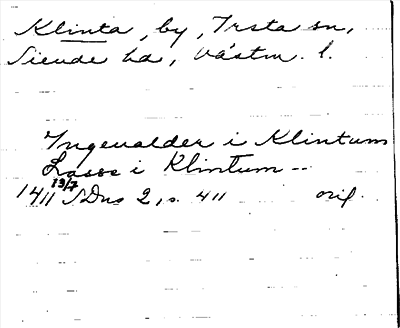 Klinta, by, Irsta sn,
Siende hd, Västm. l.
Ingeualder i Klintum
Lasse i Klintum --
1411 19/7 SDns 2, s. 411 orig.